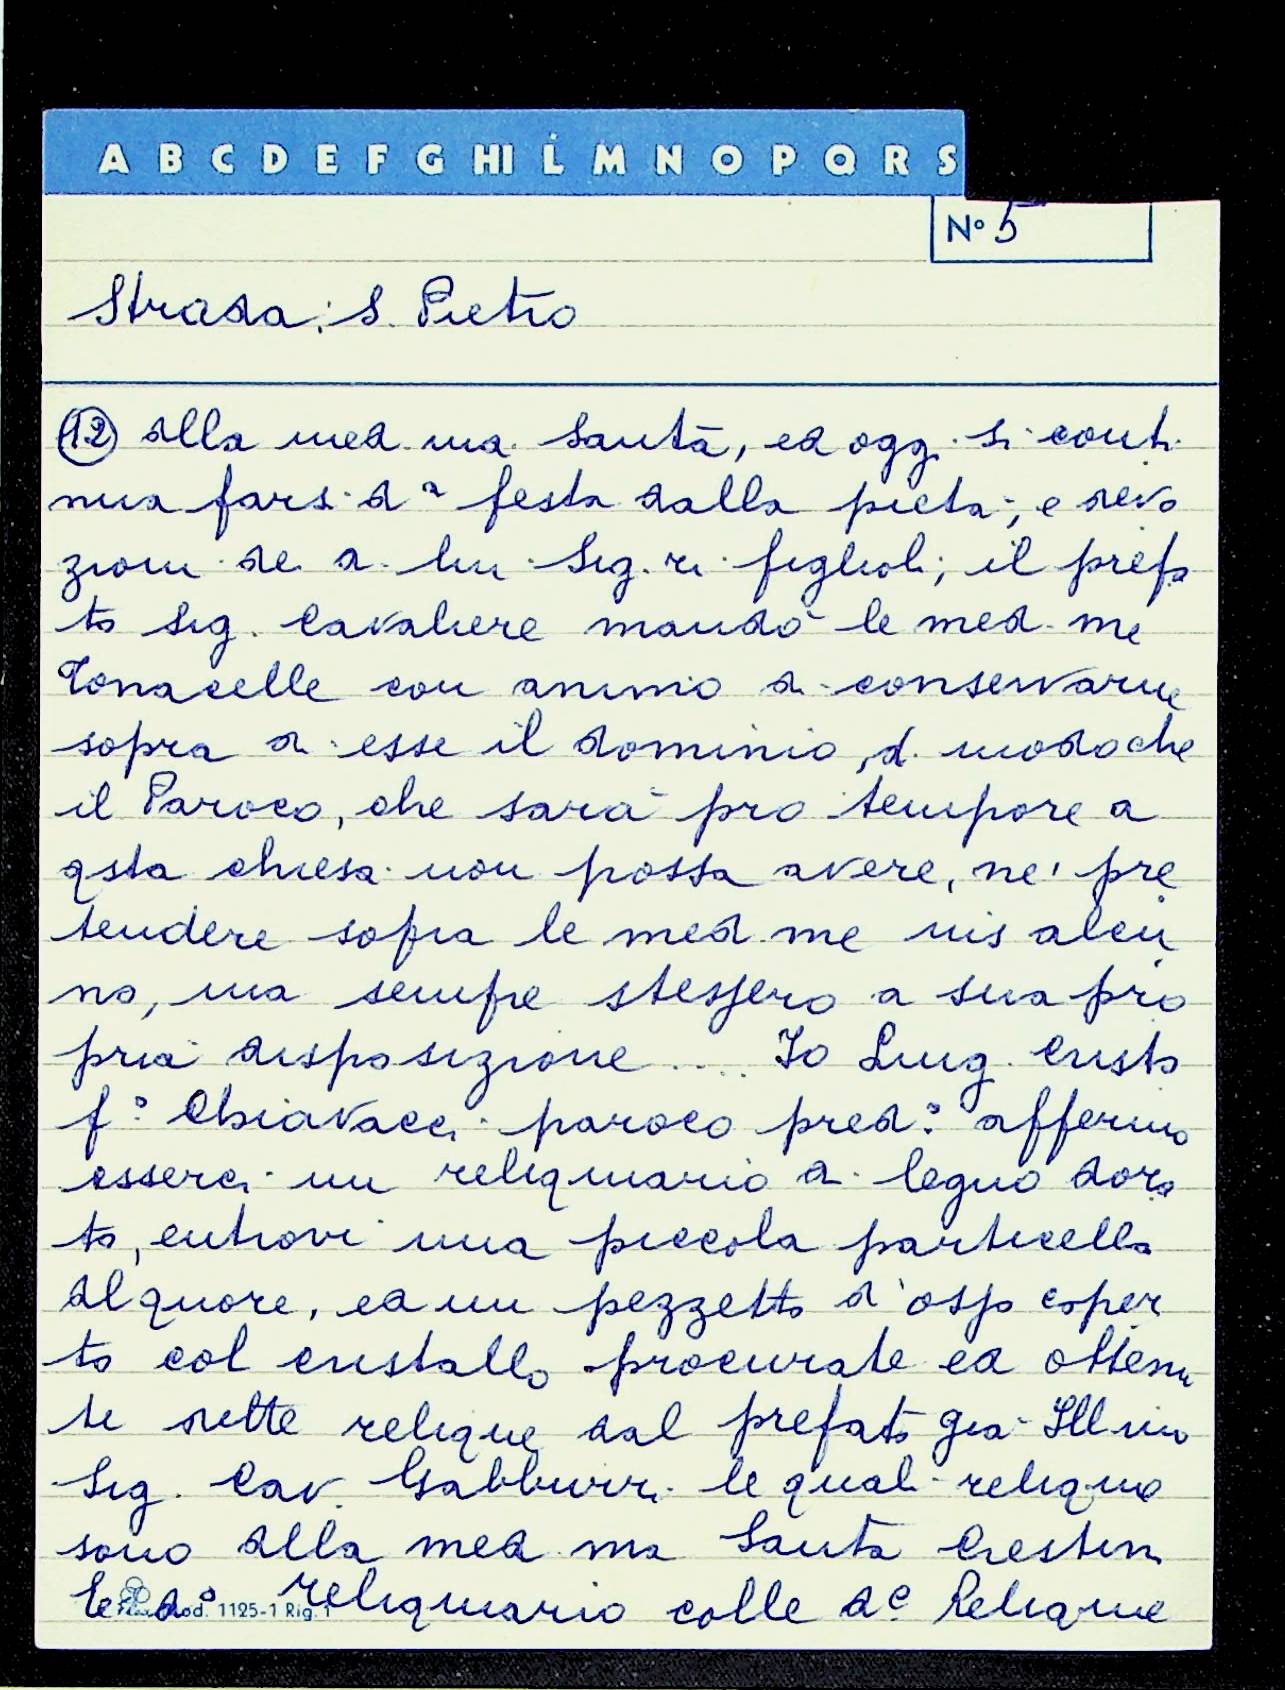 A B C D E F G HI L M N O P Q R S
N° 5
Strada: S. Pietro
(12) alla med.ma Santa, ed oggi si conti
nua farsi da festa dalla pietà, e devo
zioni de di lui Sig.ri figlioli; il prefa
to Sig. Cavaliere mandò le med.me
Tonacelle con animo di conservarne
sopra di esse il dominio, di modo che
il Paroco, che sarà pro tempore a
qsta chiesa non possa avere, nè pre
tendere sopra le med.me ius alcu
no, ma sempre stessero a sua pro
pria disposizione .... Io Luig. Cristo
f.° Chiavacci paroco pred.° affermo
esserci un reliquiario di legno dora
to, entrovi una piccola particella
di quore, ed un pezzetto d'osso coper
to col cristallo procurate ed ottenu
te dette relique dal prefato già Ill mo
Sig. Cav. Gabburri le quali relique
sono della med.ma Santa Crestin
le d° reliquiario colle d.e Relique
Mod. 1125-1 Rig. 1